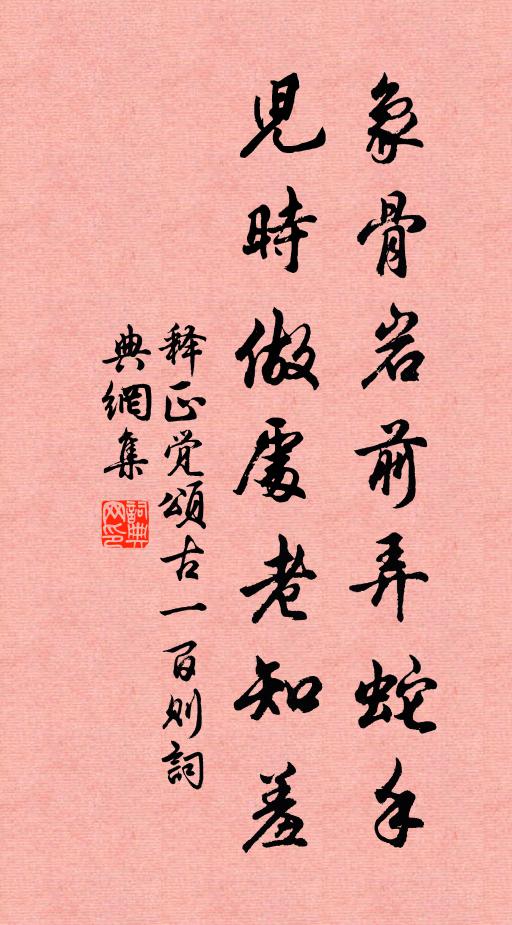 象骨岩前弄蛇手
児時做處老知羞
释正觉頌古一百则詞
典網集
詞典网印